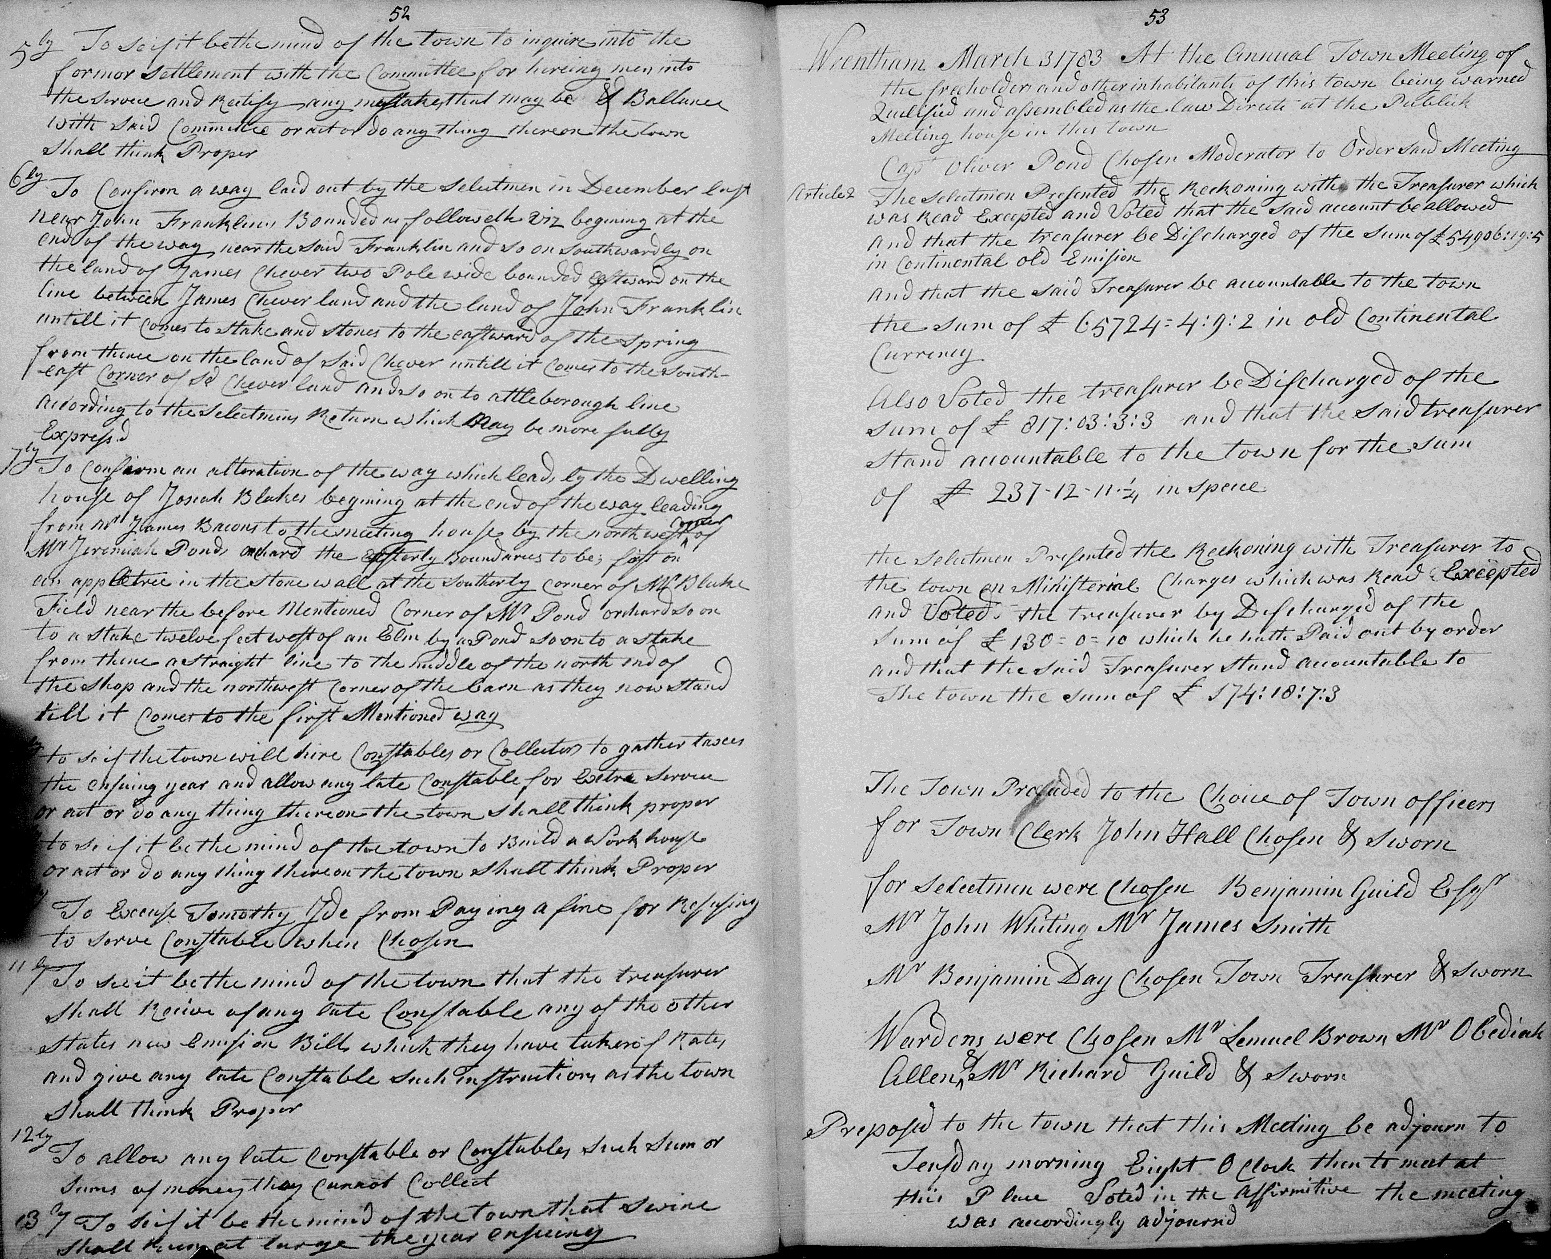 52
5ly To se if it be the mind of the town to inquire into the
former Settlement with the Committee for hireing men into
the Service and Rectify any mestakes that may be & Ballance
with Said Committee or act or do any thing thereon the town
Shall think Proper
6ly To Confirm a way laid out by the Selectmen in December last
near John Franklins Bounded as followeth Viz begining at the
end of the way near the Said Franklin and so on Southwardly on
the land of James Chever two Pole wide bounded Eastward on the
line between James Chever land and the land of John Franklin
untill it Comes to Stake and Stones to the eastward of the Spring
from thence on the land of Said Chever untill it Comes to the South-
east Corner of Sd Chever land and so on to attleborough line
according to the Selectmens Return which May be more fully
Expressd
7ly To Confirm an alteration of the way which leads by the Dwelling
house of Josiah Blakes begining at the end of the way leading
from Mr James Bacons to the meeting house by the northwest Corner of
Mr Jeremiah Ponds orchard the Easterly Boundaries to be; first on
an appletree in the Stone wall at the Southerly Corner of Mr Blake
Field near the before Mentioned Corner of Mr Pond orchard so on
to a Stake twelve feet west of an Elm by a Pond so on to a Stake
from thence a Straight line to the middle of the north end of
the Shop and the northwest Corner of the barn as they now Stand
till it Comes to the first Mentioned way
to se if the town will hire Constables or Collectors to gather taxces
the ensuing year and allow any late Constable for Extra Service
or act or do any thing thereon the town Shall think proper
to se if it be the mind of the town to Build a Work house
or act or do any thing thereon the town Shall think Proper
To Excuse Tomothy Ide from Paying a fine for Refusing
to Serve Constable when Chosen
11ly To se it be the mind of the town that the treasurer
Shall Recive of any late Constable any of the other
States new Emision Bills which they have taken of Rates
and give any late Constable Such instructions as the town
Shall think Proper
12ly To allow any late Constable or Constables Such Sum or
Sums of money they Cannot Collect
13ly To se if it be the mind of the town that Swine
Shall Run at large the year ensuing
53
Wrentham March 3 1783 At the Annual Town Meeting of
the freeholders and other inhabitants of this town being warned
Qualified and assembled as the law Directs at the Publick
Meeting house in this town
Capt Oliver Pond Chosen Moderator to Order Said Meeting
Article 2 The Selectmen Presented the Reckoning with the Treasurer which
was Read Excepted and Voted that the Said account be allowed
and that the treasurer be Discharged of the Sum of £54906:19:5
in Continental old Emision
and that the Said Treasurer be accountable to the town
the Sum of £ 65724=4:9:2 in old Continental
Currency
Also Voted the treasurer be Discharged of the
Sum of £ 817:03:3:3 and that the Said treasurer
Stand accountable to the town for the Sum
of £ 237-12-11-¼ in Specce
the Selectmen Presented the Reckoning with Treasurer to
the town on Ministerial Charges which was Read Excepted
and Voted the treasurer by Discharged of the
Sum of £ 130=0=10 which he hath Paid out by order
and that the Said Treasurer Stand accountable to
The town the Sum of £ 174:18:7:3
The Town Proceded to the Choice of Town officers
for Town Clerk John Hall Chosen & Sworn
for Selectmen were Chosen Benjamin Guild Esqr
Mr John Whiting Mr James Smith
Mr Benjamin Day Chosen Town Treasurer & Sworn
Wardens were Chosen Mr Lemuel Brown Mr Obediah
Allen & Mr Richard Guild & Sworn
Proposd to the town that this Meeting be adjourn to
Teusday morning Eight O Clock then to meet at
this Place Voted in the Affirmitive the meeting
was accordingly adjournd